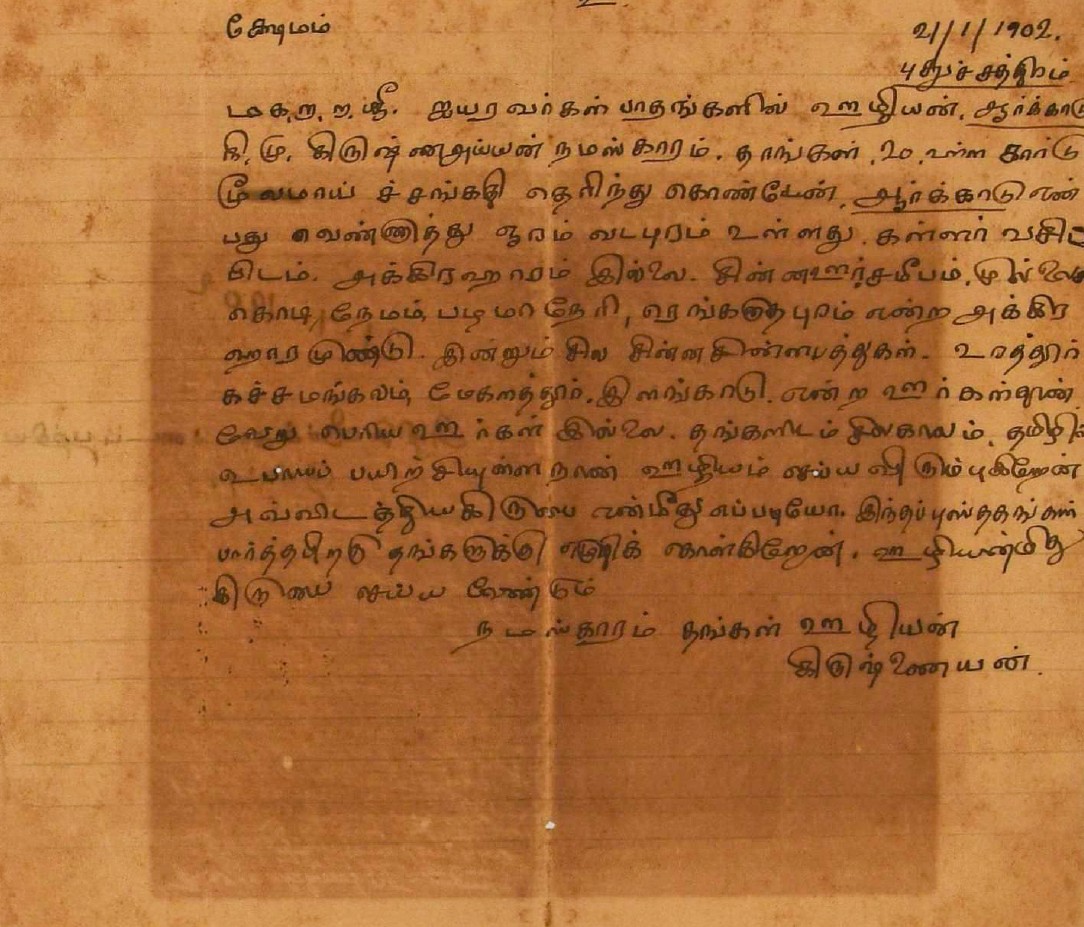 உ
க்ஷேமம்
2/1/1902.
புதுச்சத்திரம்
ம.க.ற.ற.ஸ்ரீ. ஐயரவர்கள் பாதங்களில் ஊழியன். ஆர்க்காடு
கி.மு. கிருஷ்ணஅய்யன் நமஸ்காரம். தாங்கள். 20. உள்ள கார்டு
மூலமாய் சங்கதி தெரிந்து கொண்டேன். ஆர்க்காடு என்
பது வெண்ணாத்து வடபுரம் உள்ளது. கள்ளர் வசிப்
பிடம். அக்கிரஹாரம் இல்லை. சின்னஊர். சமீபம். முல்லை
கொடி, நேமம், படிமாநேரி, ரங்கநாதபுரம் என்ற அக்கிர
ஹாரமுண்டு. இன்றும் சில சின்னகிண்ணபத்துகள். உரத்தூர்
கச்சமங்கலம், மேகளத்தூர். இளங்காடு. என்ற ஊர்கள்தான்
வேறு பெரிய ஊர்கள் இல்லை. தங்களிடம் சிலகாலம். தமிழில்
உபாயப் பயிற்சியுள்ள நான் ஊழியம் செய்ய விரும்புகிறேன்
அவ்விடத்தியகிருபை என்மீது எப்படியோ. இந்தப்புஸ்தகங்கள்
பார்த்தபிறகு தங்களுக்கு எழுதிக் கொள்கிறேன். ஊழியன்மீது
கிருபை செய்ய வேண்டும்
நமஸ்காரம் தங்கள் ஊழியன்
கிருஷ்ணையன்.